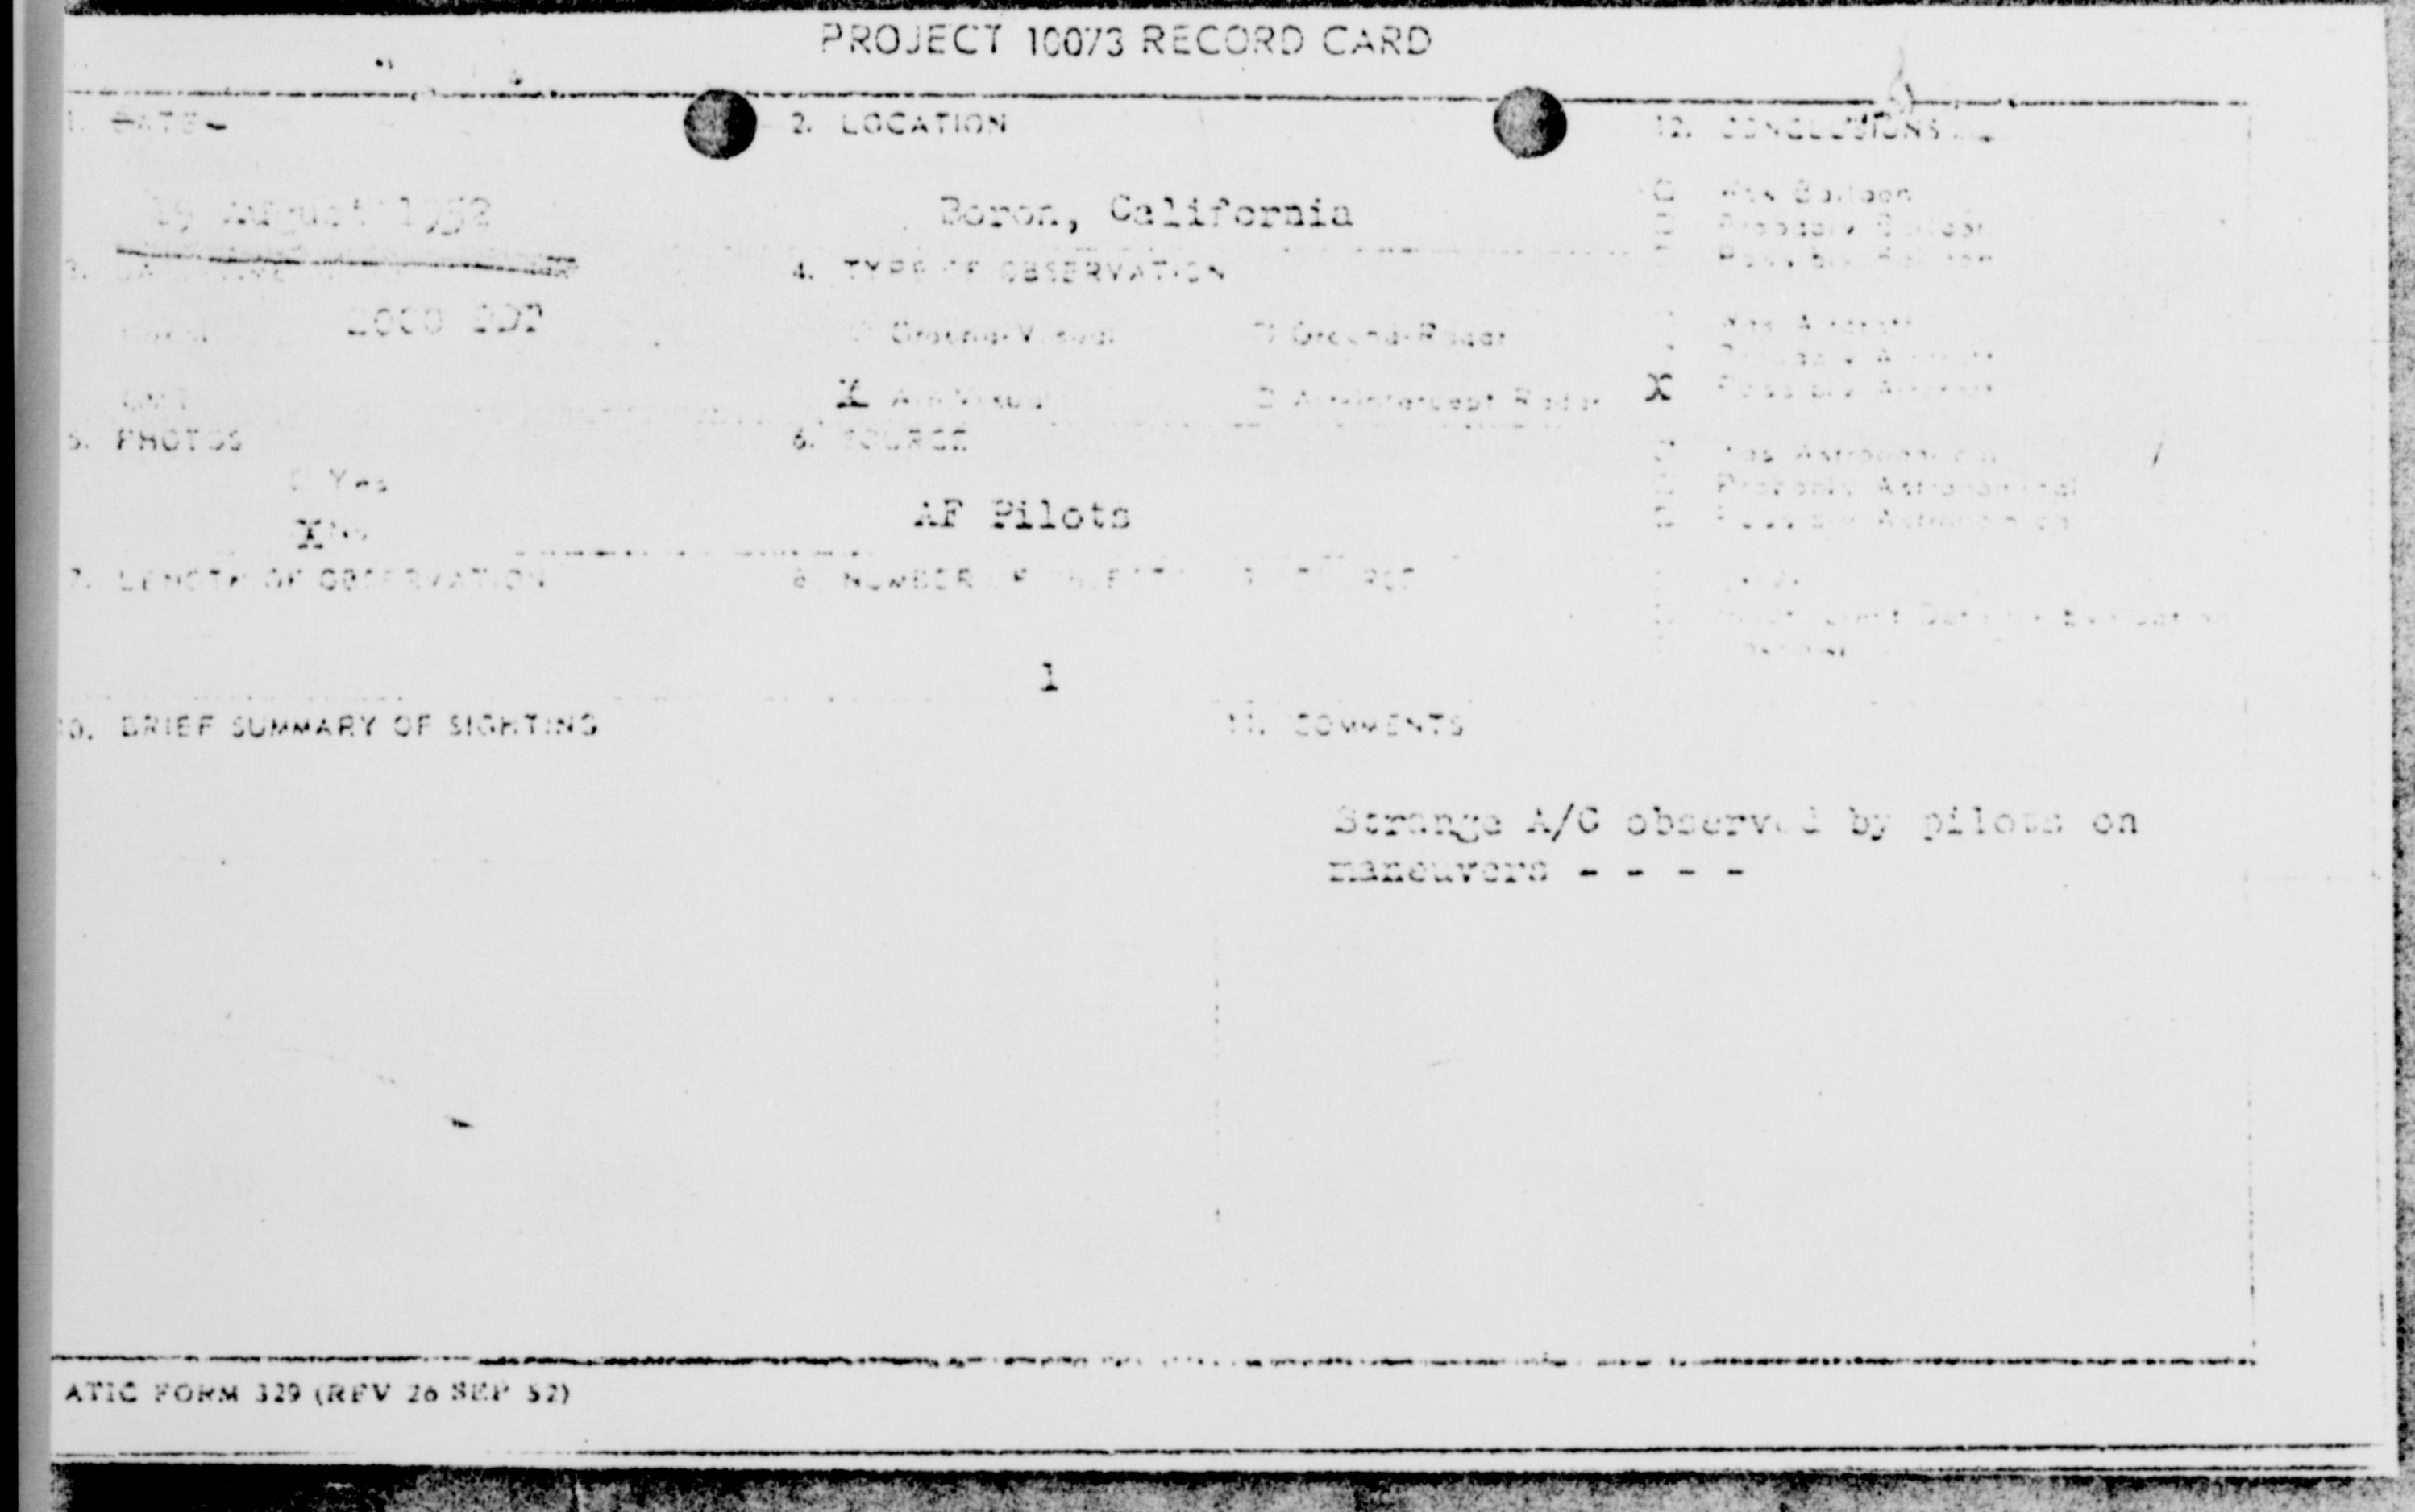 PROJECT 10073 RECORD CARD
1. DATE
2. LOCATION
12. CONCLUSIONS
August 1952
Boron, California
Was Balloon
Probably Balloon
Possibly Balloon
4. TYPE OF OBSERVATION
PDT
Ground-Visual
Ground-Radar
Was Aircraft
Probably Aircraft
X Possibly Aircraft
X Air-Visual
Air-Intercept Radar
GMT
5. PHOTOS
6. SOURCE
Yes
X No
AF Pilots
Was Astronomical
Probably Astronomical
Possibly Astronomical
7. LENGTH OF OBSERVATION
8. NUMBER OF OBJECTS
1
10. BRIEF SUMMARY OF SIGHTING
11. COMMENTS
Strange A/C observed by pilots on
maneuvers - - - -
ATIC FORM 329 (REV 26 SEP 52)